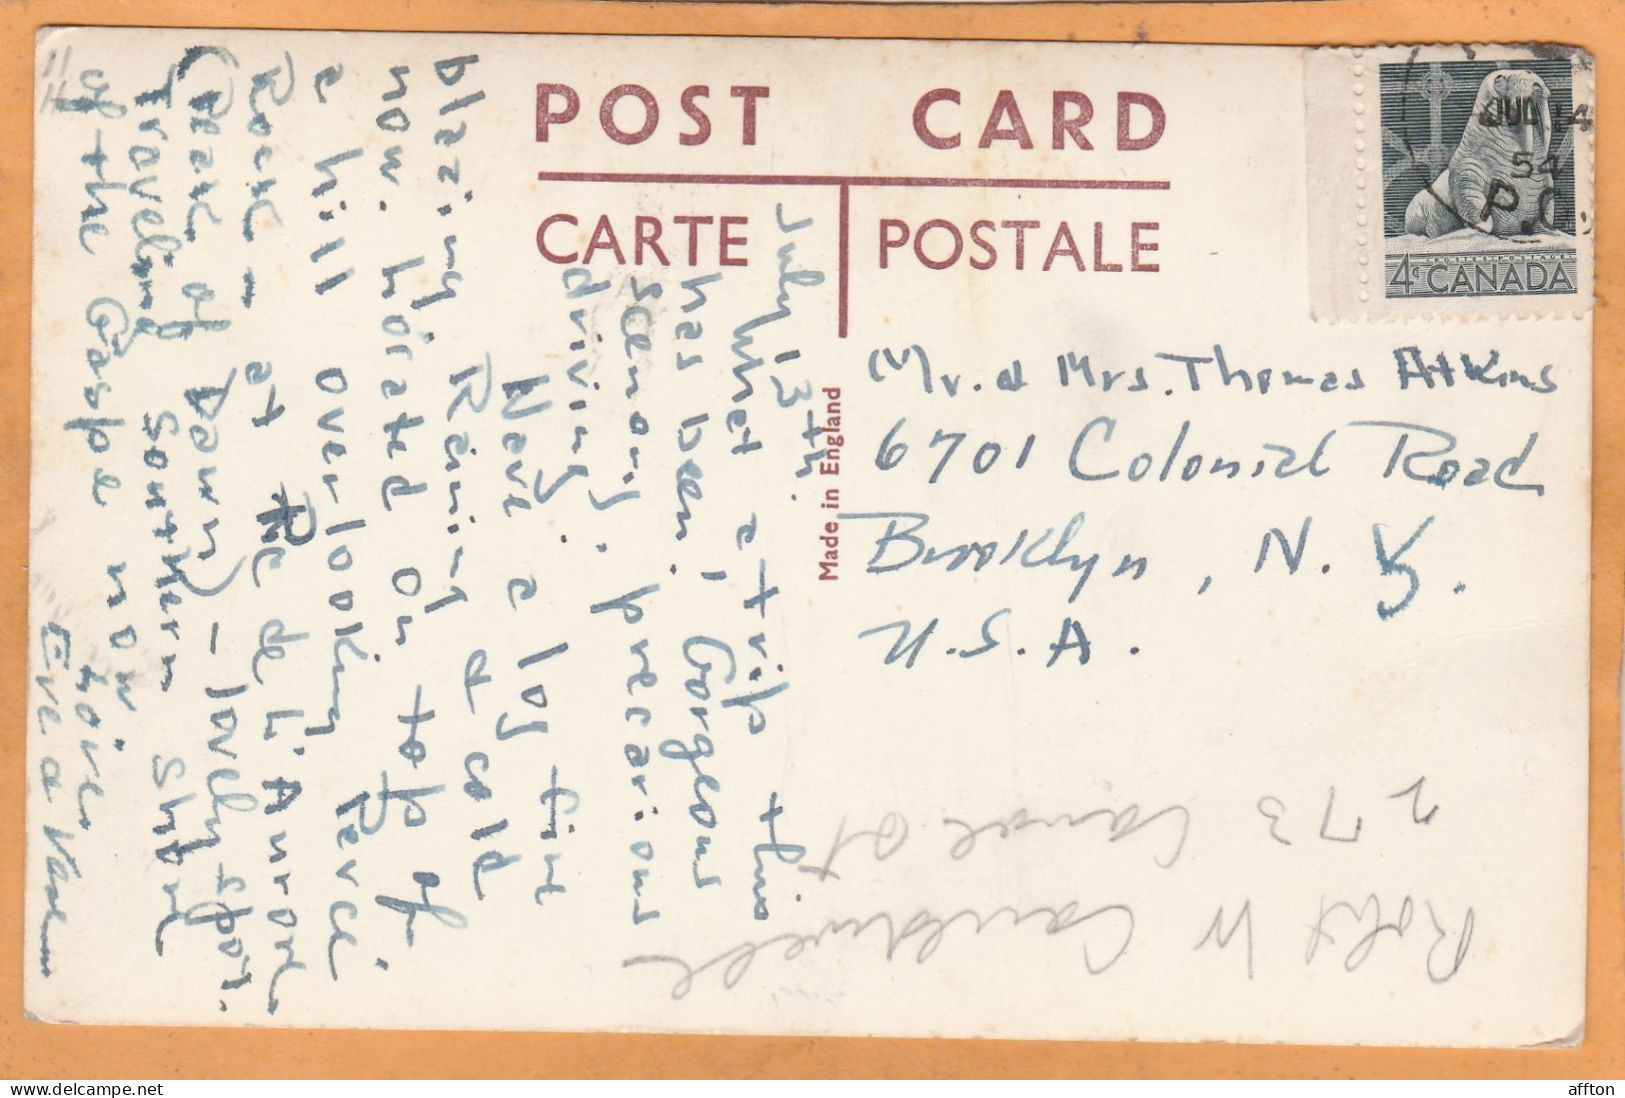 POST CARD
CARTE POSTALE
Made in England
JUL 14
54
P.Q.
4¢ CANADA
POSTES POSTAGE
July 13th.
What a trip this
has been! Gorgeous
scenery, precarious
driving.
Have a log fire
blazing. Raining & cold
now. Located on top of
a hill overlooking Perce
Rock - at Pic de L'Aurore
(Peak of Dawn) - lovely spot.
Traveling Southern Shore
of the Gaspe now.
Love
Eve &
Mr. & Mrs. Thomas Atkins
6701 Colonial Road
Brooklyn, N. Y.
U.S.A.
Robt W Cauldwell
273 Canal St